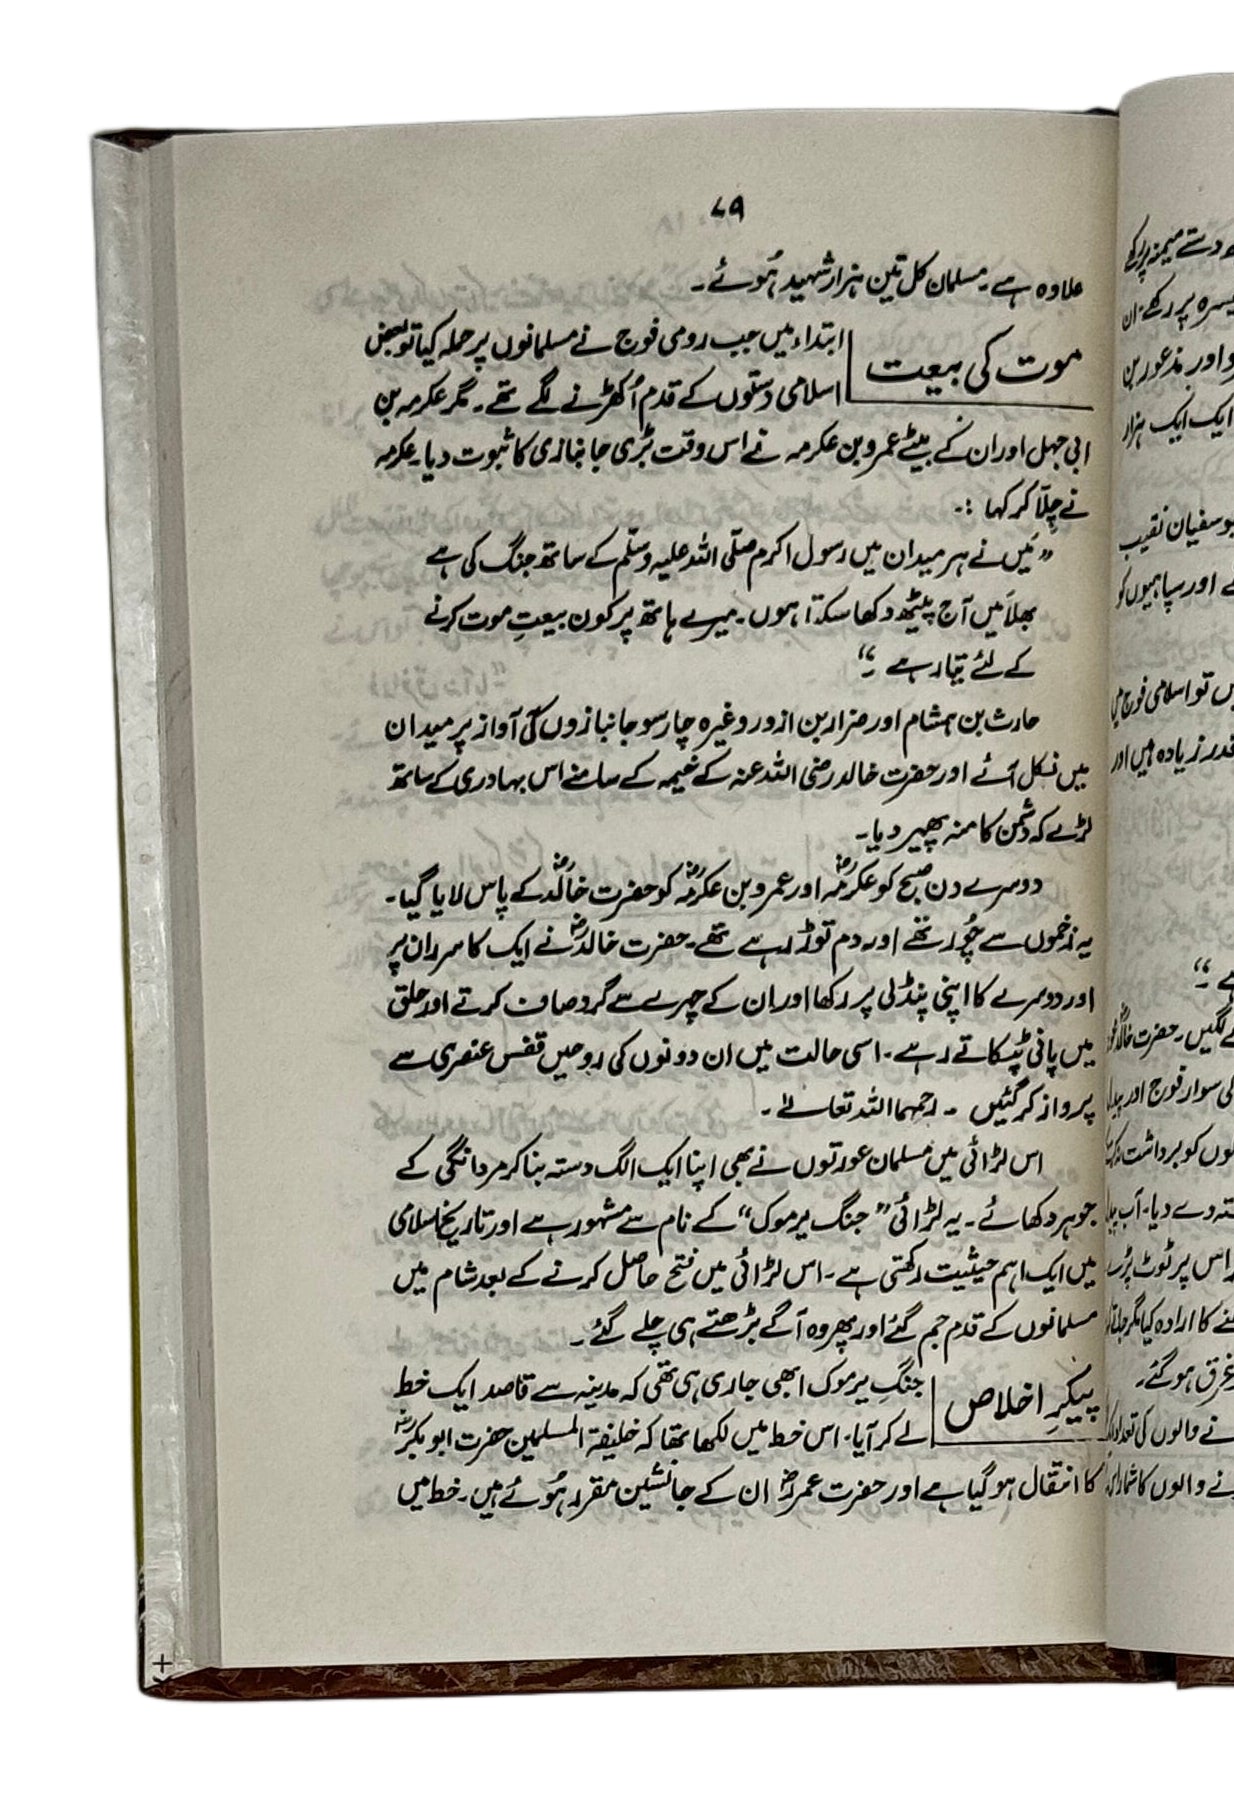 ۷۹
علاوہ ہے۔ مسلمان کل تین ہزار شہید ہُوئے۔
موت کی بیعت
ابتداء میں جب رومی فوج نے مسلمانوں پر حملہ کیا تو بعض
اسلامی دستوں کے قدم اُکھڑنے لگے تھے۔ مگر عکرمہ بن
ابی جہل اور ان کے بیٹے عمرو بن عکرمہ نے اس وقت بڑی جانبازی کا ثبوت دیا۔ عکرمہ
نے چِلّا کر کہا :۔
”مَیں نے ہر میدان میں رسول اکرم صلّی اللہ علیہ وسلّم کے ساتھ جنگ کی ہے
بھلا مَیں آج پیٹھ دکھا سکتا ہوں۔ میرے ہاتھ پر کون بیعتِ موت کرنے
کے لئے تیار ہے ۔“
حارث بن ہشام اور ضرار بن ازور وغیرہ چار سو جانبازوں کی آواز پر میدان
میں نکل آئے اور حضرت خالد رضی اللہ عنہ کے خیمہ کے سامنے اس بہادری کے ساتھ
لڑے کہ دشمن کا منہ پھیر دیا۔
دوسرے دن صبح کو عکرمہؓ اور عمرو بن عکرمہؓ کو حضرت خالدؓ کے پاس لایا گیا۔
یہ زخموں سے چُور تھے اور دم توڑ رہے تھے۔ حضرت خالدؓ نے ایک کا سر ران پر
اور دوسرے کا اپنی پنڈلی پر رکھا اور ان کے چہرے سے گرد صاف کرتے اور حلق
میں پانی ٹپکاتے رہے۔ اسی حالت میں ان دونوں کی روحیں قفس عنصری سے
پرواز کر گئیں ۔ رحمہما اللہ تعالےٰ ۔
اس لڑائی میں مسلمان عورتوں نے بھی اپنا ایک الگ دستہ بنا کر مردانگی کے
جوہر دکھائے۔ یہ لڑائی ”جنگ یرموک“ کے نام سے مشہور ہے اور تاریخ اسلامی
میں ایک اہم حیثیت رکھتی ہے۔ اس لڑائی میں فتح حاصل کرنے کے بعد شام میں
مسلمانوں کے قدم جم گئے اور پھر وہ آگے بڑھتے ہی چلے گئے۔
پیکرِ اخلاص
جنگِ یرموک ابھی جاری ہی تھی کہ مدینہ سے قاصد ایک خط
لے کر آیا۔ اس خط میں لکھا تھا کہ خلیفۃ المسلمین حضرت ابوبکرؓ
کا انتقال ہو گیا ہے اور حضرت عمرؓ ان کے جانشین مقرر ہُوئے ہیں۔ خط میں
دستے میمنہ پر رکھے
میسرہ پر رکھے۔ ان
اور مذعور بن
ایک ایک ہزار
ابوسفیان نقیب
اور سپاہیوں کو
تو اسلامی فوج میں
قدر زیادہ ہیں اور
ہے ۔“
لگیں۔ حضرت خالدؓ
کی سوار فوج اور
کو برداشت نہ کر
دے دیا۔ آپ
اس پر ٹوٹ پڑے
کا ارادہ کیا مگر
غرق ہو گئے۔
نے والوں کی تعداد
نے والوں کا شمار